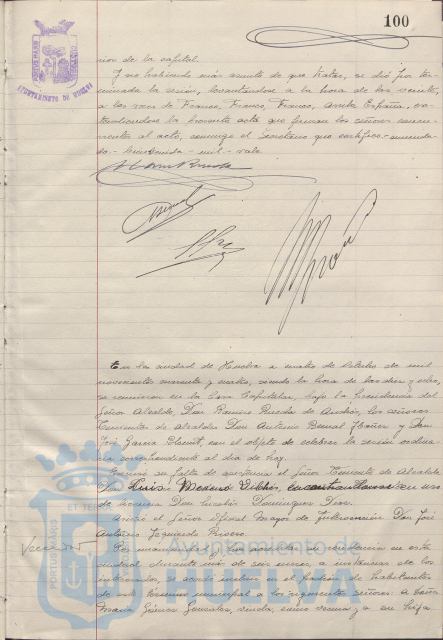 100
AYUNTAMIENTO DE HUELVA
nión de la capital.
Y no habiendo más asunto de que tratar, se dió por ter-
minada la sesión, levantándose a la hora de las veinte,
a las voces de Franco, Franco, Franco, Arriba España, ex-
tendiéndose la presente acta que firman los señores concu-
rrentes al acto, conmigo el Secretario que certifico.- enmenda-
do - bienvenida - mil - vale
En la ciudad de Huelva a cuatro de Octubre de mil
novecientos cuarenta y cuatro, siendo la hora de las diez y ocho,
se reunieron en la Casa Capitular, bajo la Presidencia del
Señor Alcalde, Don Ramiro Rueda de Andrés, los señores
Tenientes de Alcalde Don Antonio Bernal Ibáñez y Don
José García, con el objeto de celebrar la sesión ordina-
ria correspondiente al día de hoy.
su falta de asistencia el Señor Teniente de Alcalde
Don Luis Moreno encontrándose en uso
de licencia Don Domínguez
Asistió el Señor Oficial Mayor de Intervención Don José
Antonio Izquierdo
durante más de seis meses, a instancias de los
interesados, se acordó incluir en el padrón de habitantes
de este término municipal a los siguientes señores: a Doña
María Gómez González, viuda, como vecina y a su hija
Ayuntamiento de
HUELVA